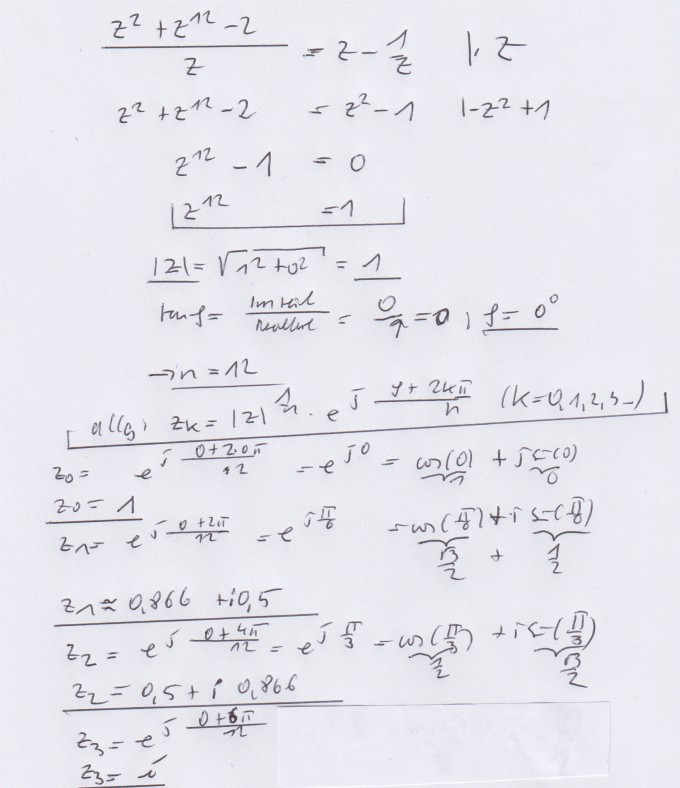 (z² + z¹² - 2)/z = z - 1/z |· z
z² + z¹² - 2 = z² - 1 |-z² + 1
z¹² - 1 = 0
z¹² = 1
|z| = √(1² + 0²) = 1
tan φ = Imteil/Realteil = 0/1 = 0 ; φ = 0°
→ n = 12
allg. zk = |z|^(1/n) · e^(j (φ + 2kπ)/n) (k = 0,1,2,3..)
z0 = e^(j (0+2·0π)/12) = e^(j0) = cos(0) + j sin(0)
1 0
z0 = 1
z1 = e^(j (0+2π)/12) = e^(j π/6) = cos(π/6) + i sin(π/6)
√3/2 + 1/2
z1 ≈ 0,866 + i0,5
z2 = e^(j (0+4π)/12) = e^(j π/3) = cos(π/3) + i sin(π/3)
1/2 √3/2
z2 = 0,5 + i 0,866
z3 = e^(j (0+6π)/12)
z3 = i